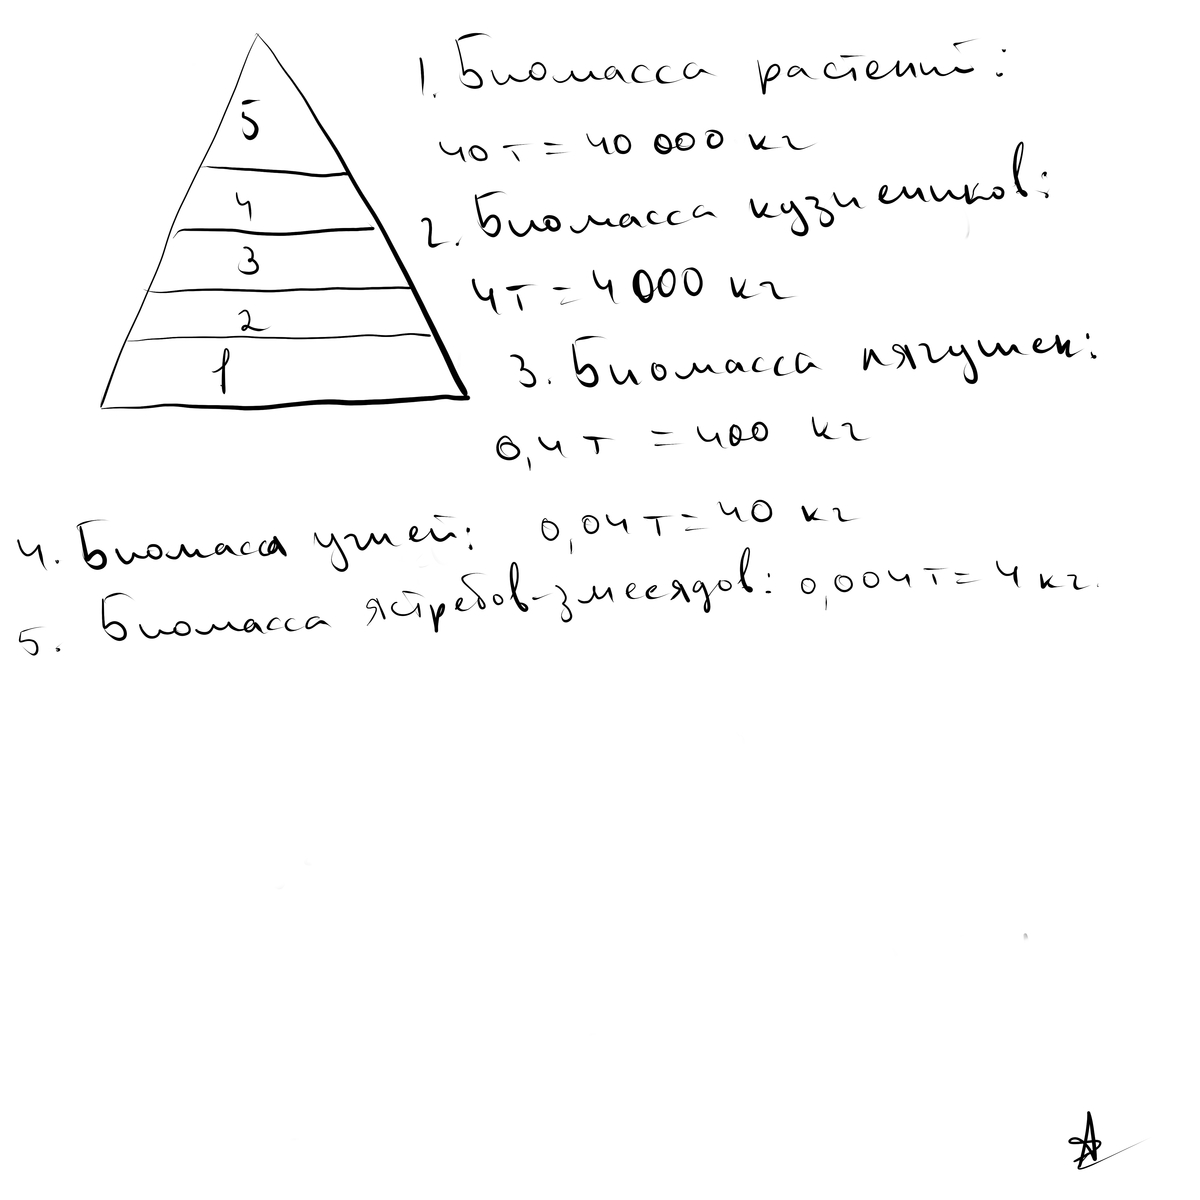 5
4
3
2
1
1. Биомасса растений:
40 т = 40 000 кг
2. Биомасса кузнечиков:
4т = 4 000 кг
3. Биомасса лягушек:
0,4 т = 400 кг
4. Биомасса ужей: 0,04 т = 40 кг
5. Биомасса ястребов-змееядов: 0,004т = 4 кг.